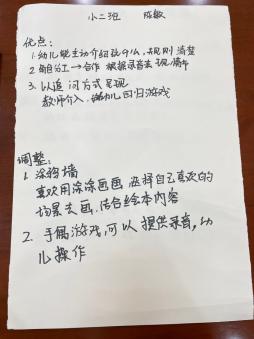 小二班 陈敏
优点：
1. 幼儿能主动介绍玩什么，规则清楚
2. 自分工→合作 根据录音去表现情节
3. 以追问方式呈现
教师介入，幼儿回归游戏
调整：
1. 涂鸦墙
喜欢用涂涂画画 选择自己喜欢的
场景去画，结合绘本内容
2. 手偶游戏，可以提供录音，幼
儿操作